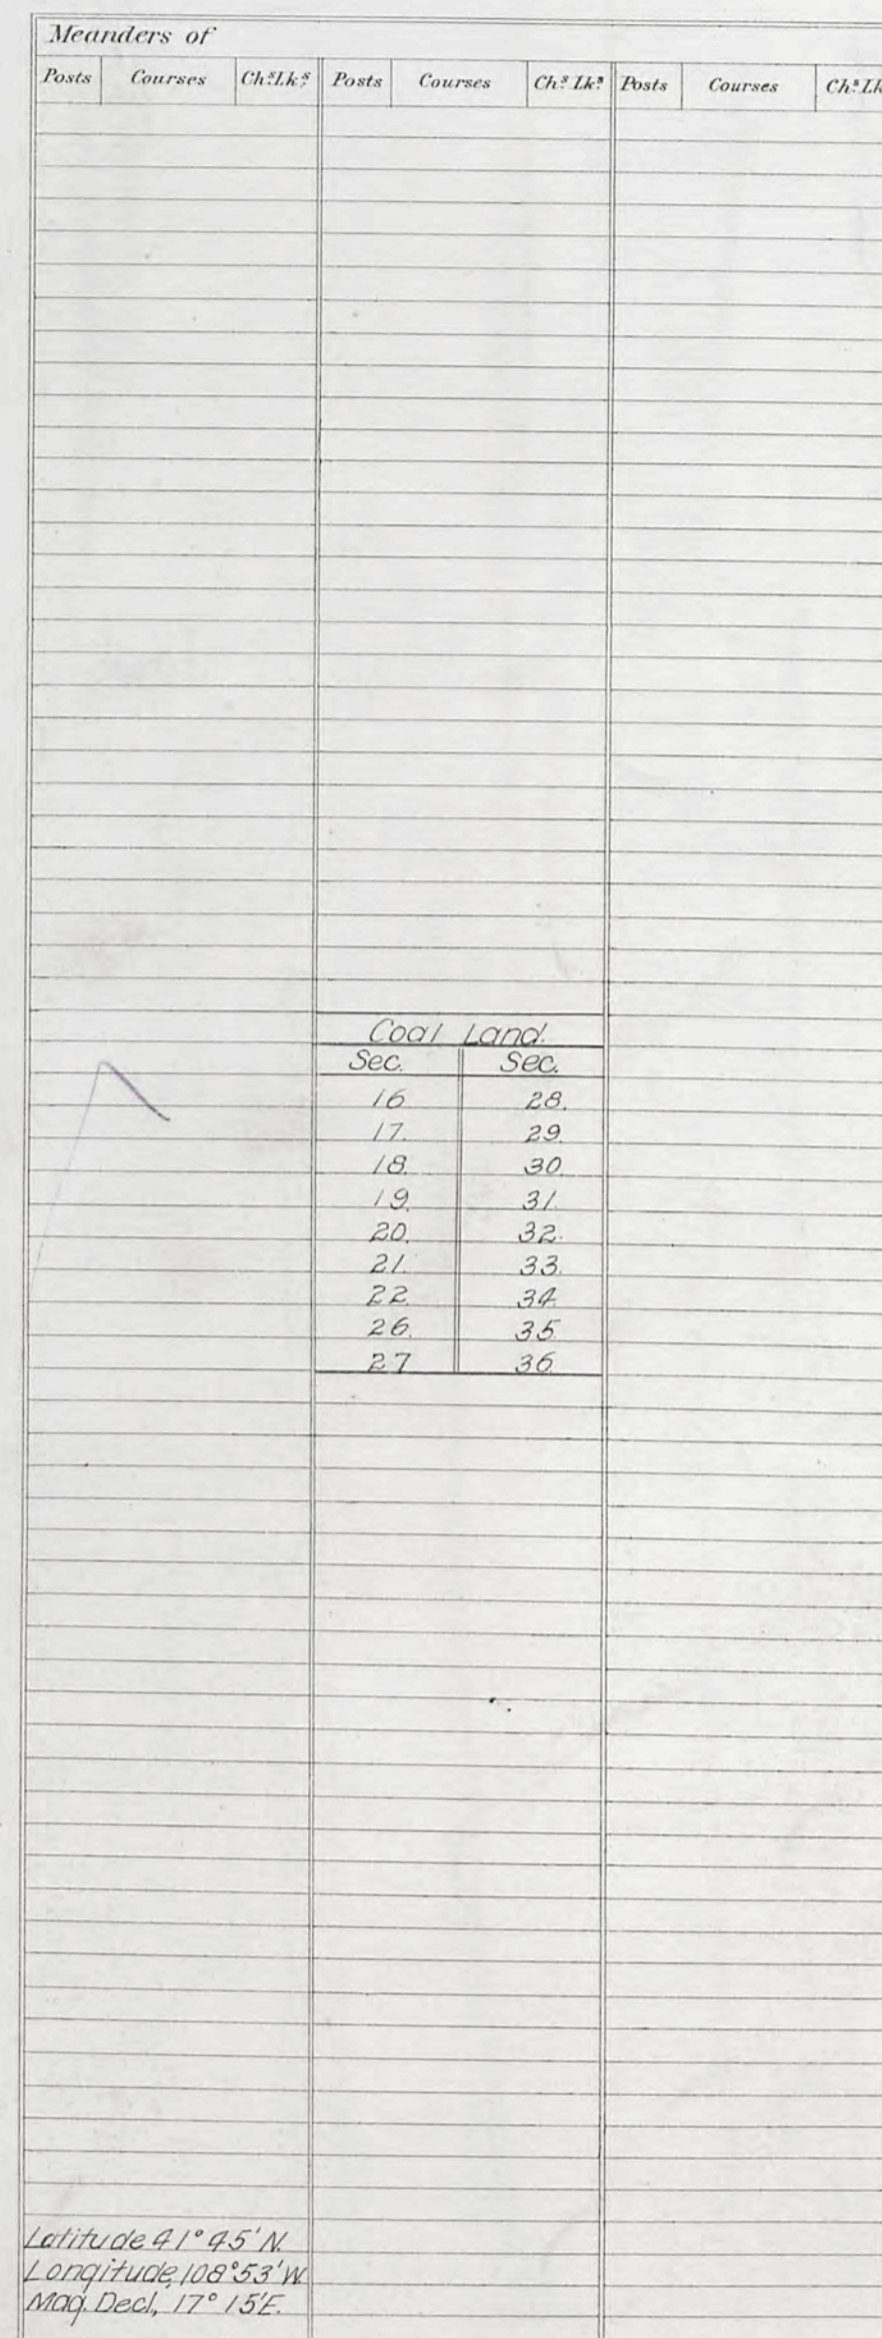 Meanders of
Posts Courses Chs Lks Posts Courses Chs Lks Posts Courses Chs Lk
Coal Land.
Sec. Sec.
16 28.
17. 29.
18. 30.
19. 31.
20. 32.
21. 33.
22. 34.
26. 35.
27 36.
Latitude 41° 45' N.
Longitude, 108° 53' W.
Mag. Decl., 17° 15' E.